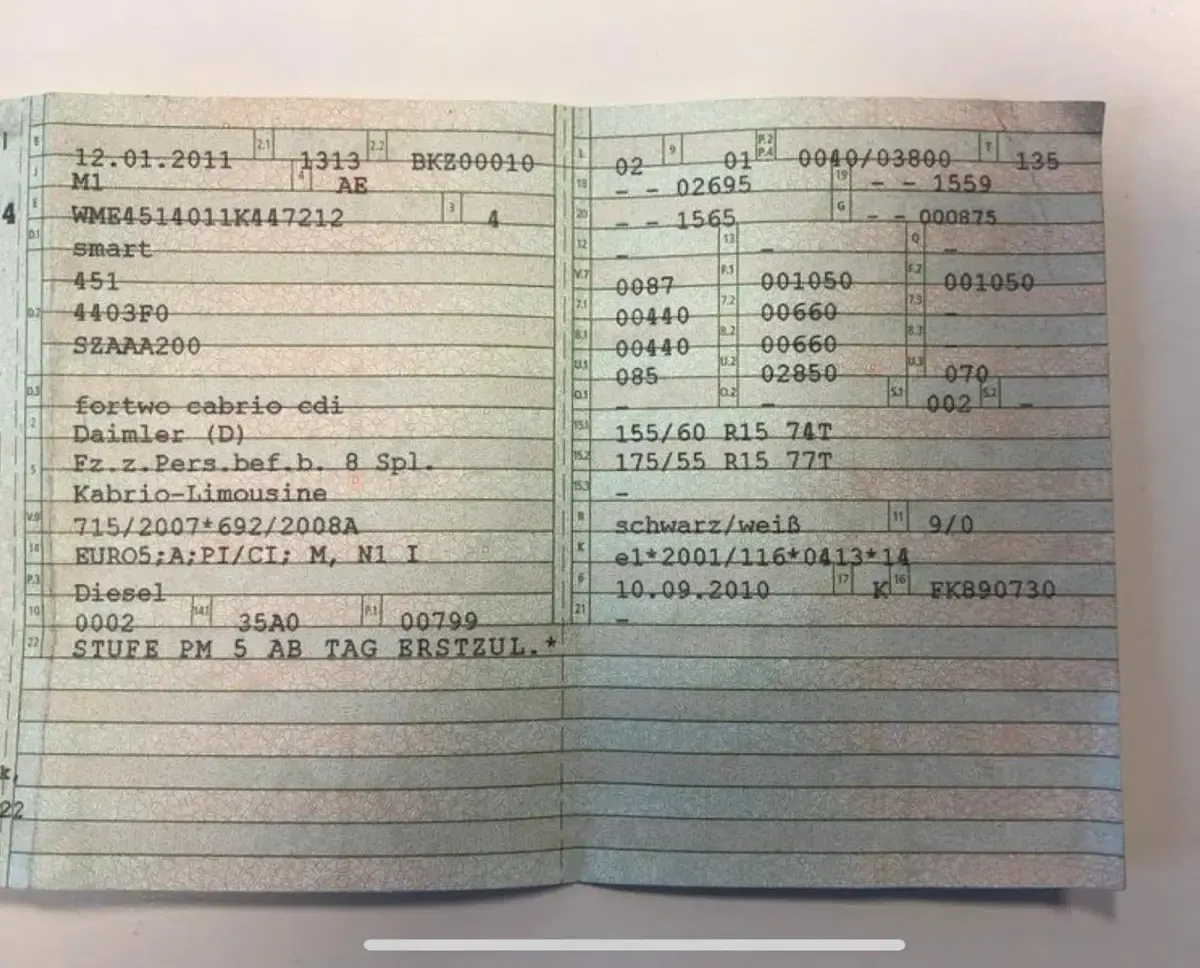 B 12.01.2011 2.1 1313 2.2 BKZ00010
J M1 4 AE
E WME4514011K447212 3 4
D.1 smart
451
D.2 4403F0
SZAAA200
D.3 fortwo cabrio cdi
2 Daimler (D)
5 Fz.z.Pers.bef.b. 8 Spl.
Kabrio-Limousine
V.9 715/2007*692/2008A
14 EURO5;A;PI/CI; M, N1 I
P.3 Diesel
10 0002 14.1 35A0 P.1 00799
22 STUFE PM 5 AB TAG ERSTZUL.*
L 02 9 01 P.2 P.4 0040/03800 T 135
18 – – 02695 19 – – 1559
20 – – 1565 G – – 000875
12 – 13 – Q –
V.7 0087 F.1 001050 F.2 001050
7.1 00440 7.2 00660 7.3 –
8.1 00440 8.2 00660 8.3 –
U.1 085 U.2 02850 U.3 070
O.1 – O.2 – S.1 002 S.2 –
15.1 155/60 R15 74T
15.2 175/55 R15 77T
15.3 –
R schwarz/weiß 11 9/0
K e1*2001/116*0413*14
6 10.09.2010 17 K 16 FK890730
21 –
4
k,
22